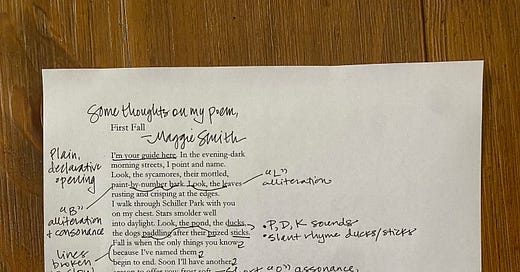 Some thoughts on my poem,
First Fall
—Maggie Smith
Plain,
declarative
opening
I'm your guide here. In the evening-dark
morning streets, I point and name.
Look, the sycamores, their mottled,
paint-by-number bark. Look, the leaves
rusting and crisping at the edges.
"L"
alliteration
I walk through Schiller Park with you
on my chest. Stars smolder well
into daylight. Look, the pond, the ducks,
the dogs paddling after their prized sticks.
"B"
alliteration
+ consonance
• P, D, K sounds
• slant rhyme ducks/sticks
Fall is when the only things you know 2
because I've named them 2
begin to end. Soon I'll have another 2
season to offer you: frost soft
lines
broken
assonance,